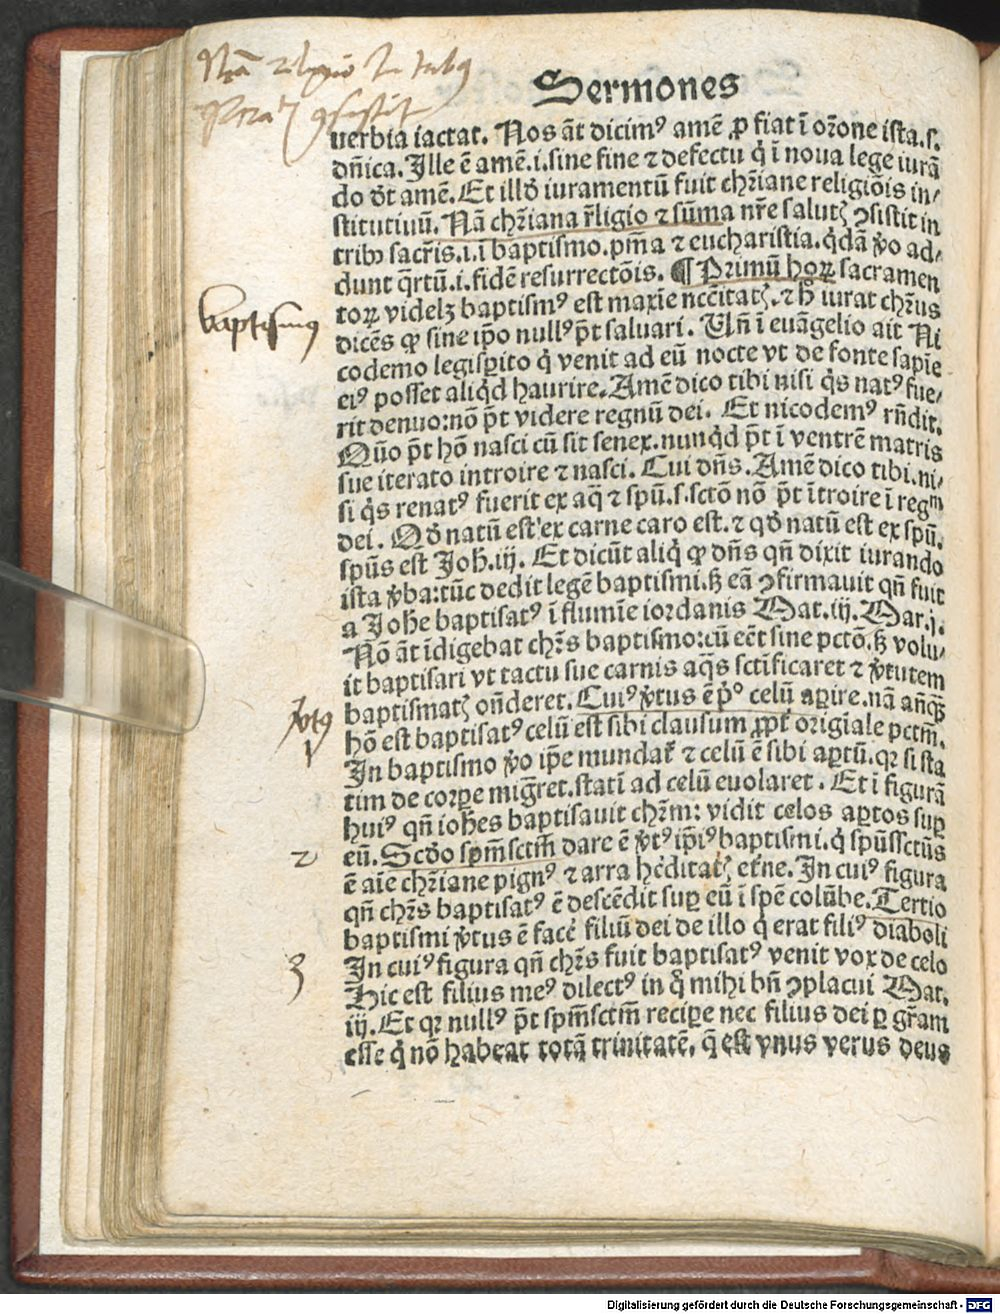 Sermones
uerbia iactat. Nos āt dicimꝰ amē ꝓ fiat ī oꝛ̄one ista.s.
dn̄ica. Ille ē amē.i.sine fine ⁊ defectu q̇ ī noua lege iurā
do dt̄ amē. Et illd̓ iuramentū fuit chꝛ̄iane religiōis in/
stitutiuū. Nā chꝛ̄iana r̄ligio ⁊ sūma nr̄e salutꝫ ꝯsistit in
tribꝰ sacr̄is.i.ī baptismo.pm̄a ⁊ eucharistia.q̇dā v̓o ad/
dunt q̄rtū.i.fidē resurrectōis. ¶ Primū hoꝝ sacramen
toꝝ videlꝫ baptismꝰ est maxīe nccītatꝫ.⁊ h̄ iurat chꝛ̄us
dicēs ꝙ sine ip̄o nullꝰ pt̄ saluari. Un̄ ī euāgelio ait Ni
codemo legisꝑito q̇ venit ad eū nocte vt de fonte sapīe
eiꝰ posset aliq̇d haurire. Amē dico tibi nisi q̇s natꝰ fue/
rit denuo:nō pt̄ videre regnū dei. Et nicodemꝰ rn̄dit.
Quō pt̄ hō nasci cū sit senex.nunq̇d pt̄ ī ventrē matris
sue iterato introire ⁊ nasci. Cui dn̄s. Amē dico tibi.ni/
si q̇s renatꝰ fuerit ex aq̄ ⁊ spū.s.sctō nō pt̄ ītroire ī regᵐ
dei. Qd̓ natū est ex carne caro est.⁊ qd̓ natū est ex spū.
spūs est Joh̄.iij. Et dicūt aliq̇ ꝙ dn̄s qn̄ dixit iurando
ista v̓ba:tūc dedit legē baptismi.sꝫ eā ꝯfirmauit qn̄ fuit
a Joh̄e baptisatꝰ ī flumīe iordanis Mat.iij. Mar.j.
Nō āt īdigebat chꝛ̄s baptismo:cū eēt sine pctō.sꝫ volu/
it baptisari vt tactu sue carnis aq̄s sctīficaret ⁊ v̓tutem
baptismatꝫ on̄deret. Cuiꝰ v̓tus ē pº celū aꝑire.nā an̄q̄ꝫ
hō est baptisatꝰ celū est sibi clausum ꝓpt̓ oꝛigīale pctm̄.
In baptismo v̓o ip̄e mundat̓ ⁊ celū ē sibi aꝑtū.qꝛ si sta
tim de corꝑe mig̓ret.statī ad celū euolaret. Et ī figurā
huiꝰ qn̄ ioh̄es baptisauit chꝛ̄m: vidit celos aꝑtos suꝑ
eū. Scd̓o spm̄sctm̄ dare ē v̓tꝰ ip̄iꝰ baptismi.q̇ spūssctūs
ē aīe chꝛ̄iane pignꝰ ⁊ arra h̓editatꝫ et̓ne. In cuiꝰ figura
qn̄ chꝛ̄s baptisatꝰ ē descēdit suꝑ eū ī spē colūbe. Tertio
baptismi v̓tus ē facē filiū dei de illo q̇ erat filiꝰ diaboli
In cuiꝰ figura qn̄ chꝛ̄s fuit baptisatꝰ venit vox de celo
Hic est filius meꝰ dilectꝰ in q̊ mihi bn̄ ꝯplacui Mat.
iij. Et qꝛ nullꝰ pt̄ spm̄sctm̄ recipe nec filius dei ꝑ gr̄am
esse q̇ nō habeat totā trinitatē, q̄ est vnus verus deus
baptismus
v̓tꝰ
1
2
3
Digitalisierung gefördert durch die Deutsche Forschungsgemeinschaft - DFG